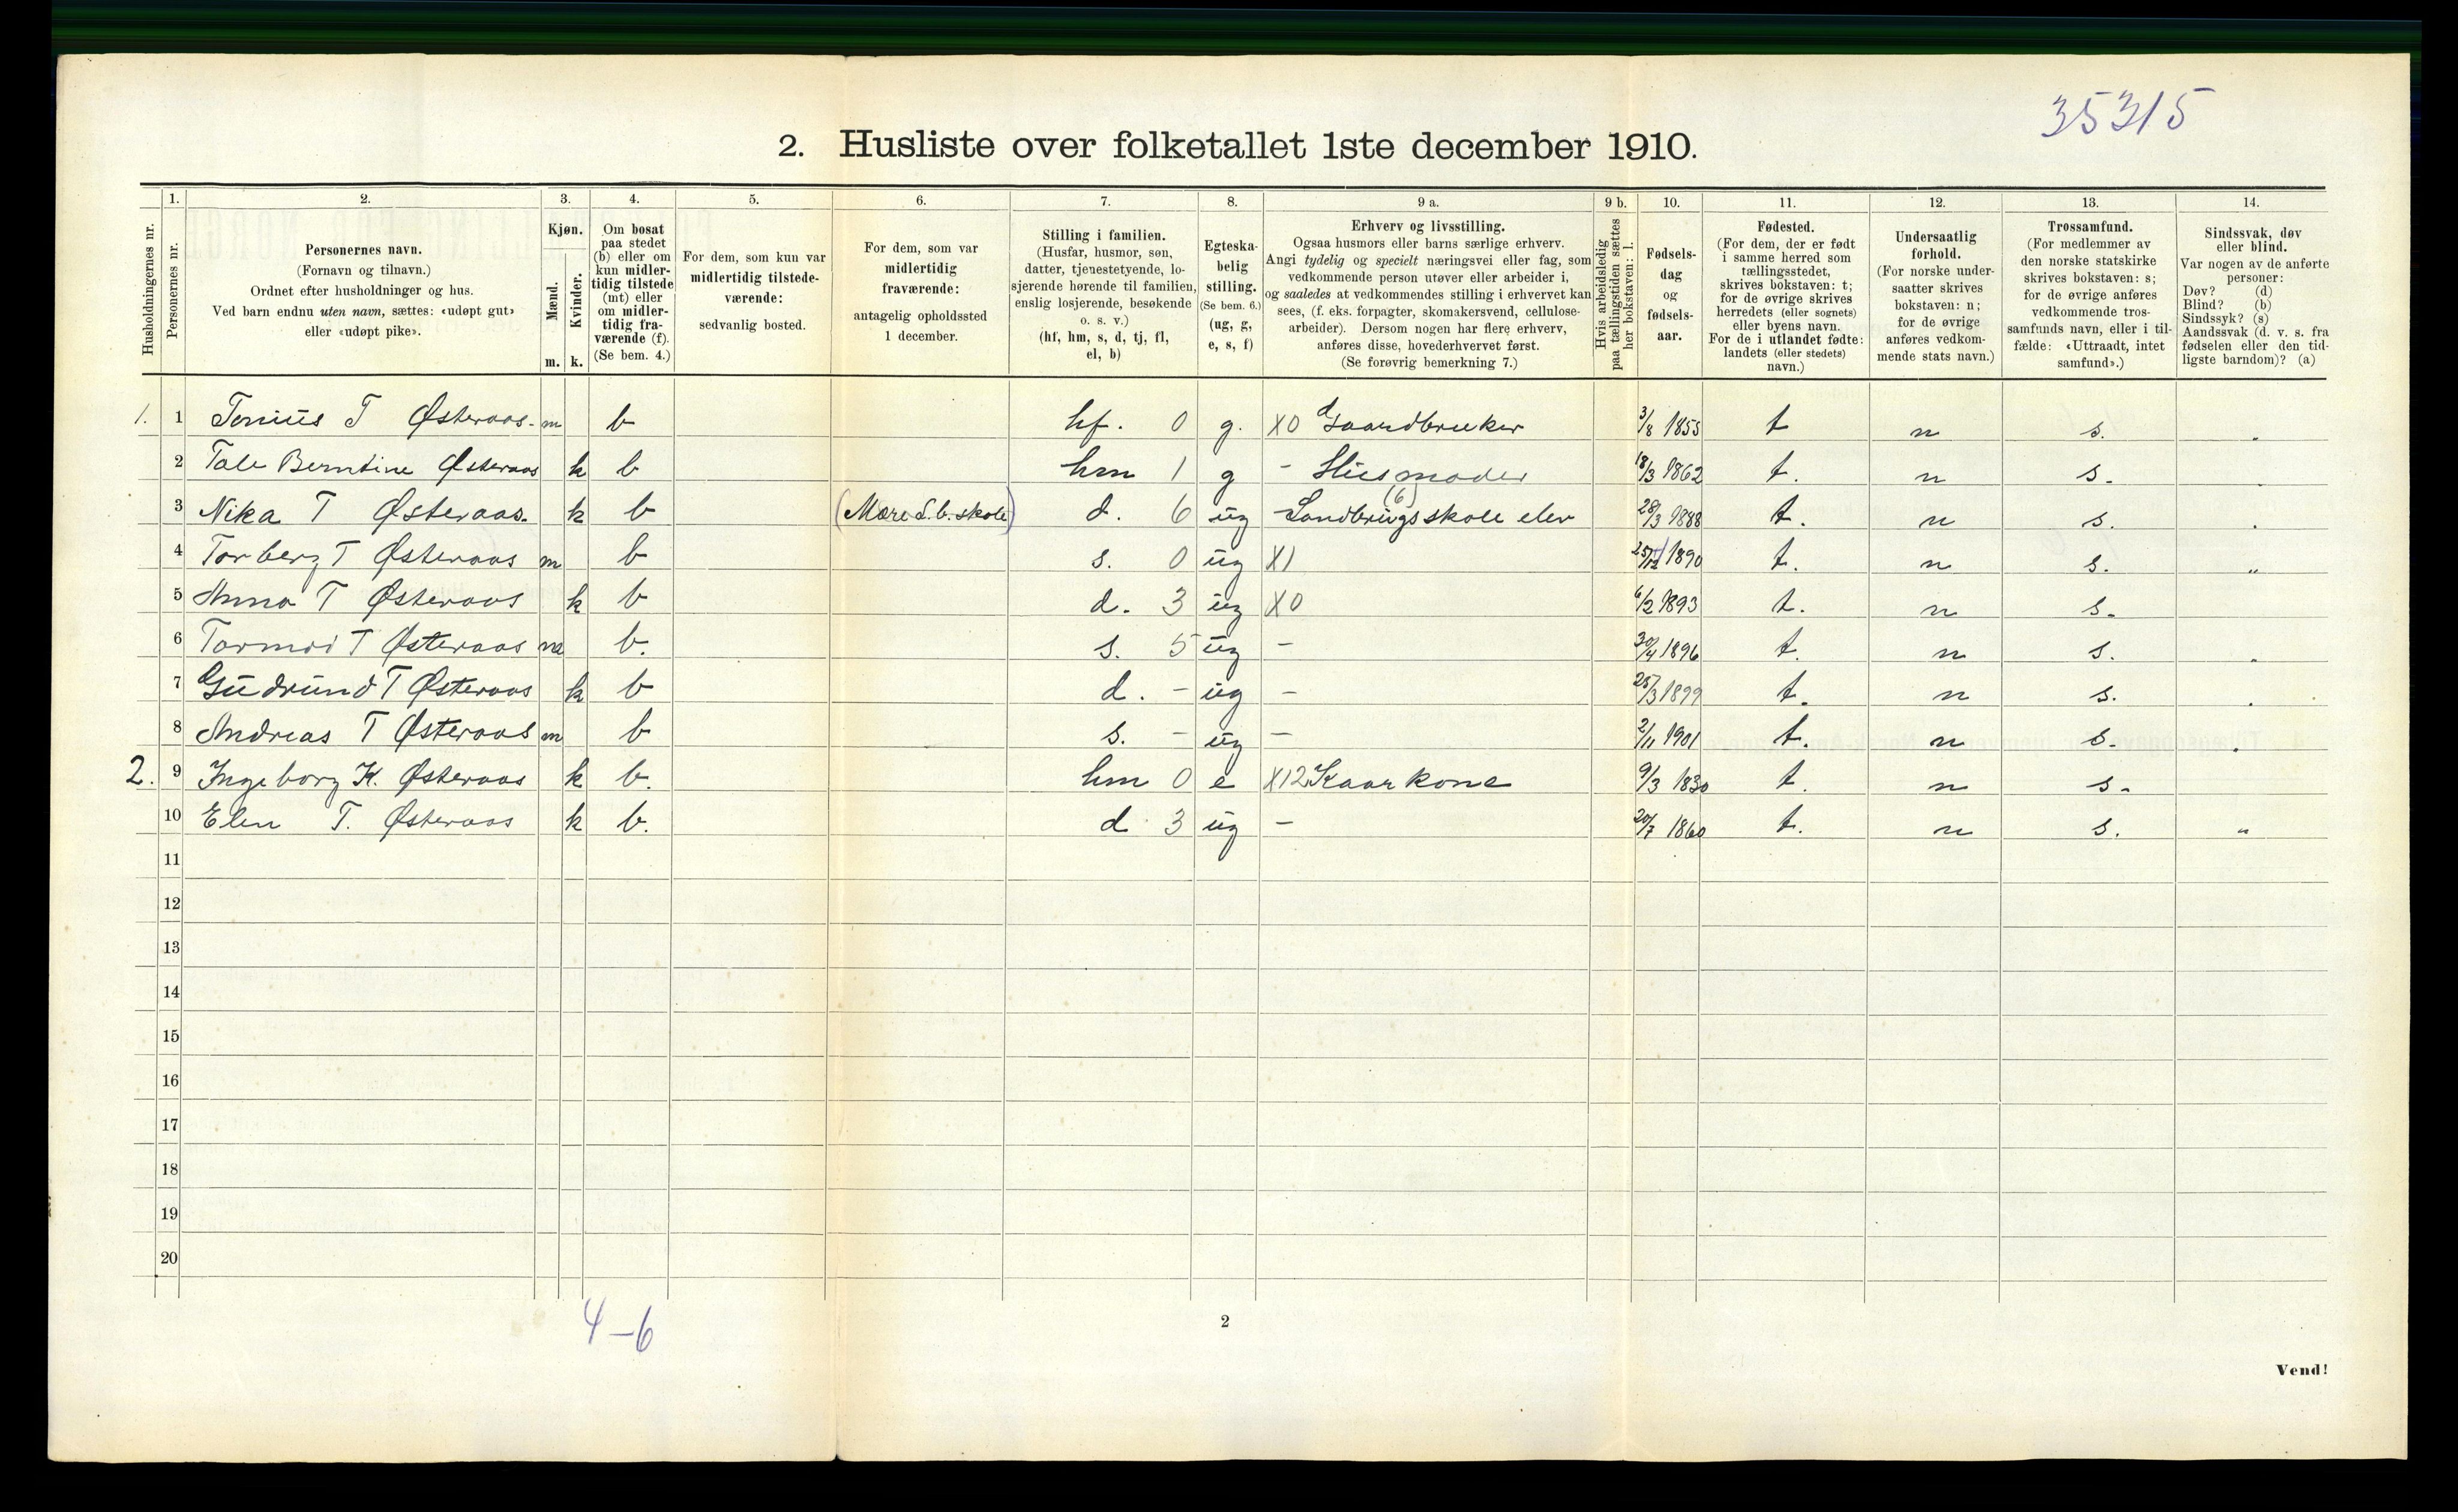 35315
2. Husliste over folketallet 1ste december 1910.
Husholdningernes nr.
1. Personernes nr.
2. Personernes navn.
(Fornavn og tilnavn.)
Ordnet efter husholdninger og hus.
Ved barn endnu uten navn, sættes: «udøpt gut»
eller «udøpt pike».
3. Kjøn.
Mænd. m.
Kvinder. k.
4. Om bosat
paa stedet
(b) eller om
kun midler-
tidig tilstede
(mt) eller
om midler-
tidig fra-
værende (f).
(Se bem. 4.)
5. For dem, som kun var
midlertidig tilstede-
værende:
sedvanlig bosted.
6. For dem, som var
midlertidig
fraværende:
antagelig opholdssted
1 december.
7. Stilling i familien.
(Husfar, husmor, søn,
datter, tjenestetyende, lo-
sjerende hørende til familien,
enslig losjerende, besøkende
o. s. v.)
(hf, hm, s, d, tj, fl,
el, b)
8. Egteska-
belig
stilling.
(Se bem. 6.)
(ug, g,
e, s, f)
9 a. Erhverv og livsstilling.
Ogsaa husmors eller barns særlige erhverv.
Angi tydelig og specielt næringsvei eller fag, som
vedkommende person utøver eller arbeider i,
og saaledes at vedkommendes stilling i erhvervet kan
sees, (f. eks. forpagter, skomakersvend, cellulose-
arbeider). Dersom nogen har flere erhverv,
anføres disse, hovederhvervet først.
(Se forøvrig bemerkning 7.)
9 b. Hvis arbeidsledig
paa tællingstiden sættes
her bokstaven: l.
10. Fødsels-
dag
og
fødsels-
aar.
11. Fødested.
(For dem, der er født
i samme herred som
tællingsstedet,
skrives bokstaven: t;
for de øvrige skrives
herredets (eller sognets)
eller byens navn.
For de i utlandet fødte:
landets (eller stedets)
navn.)
12. Undersaatlig
forhold.
(For norske under-
saatter skrives
bokstaven: n;
for de øvrige
anføres vedkom-
mende stats navn.)
13. Trossamfund.
(For medlemmer av
den norske statskirke
skrives bokstaven: s;
for de øvrige anføres
vedkommende tros-
samfunds navn, eller i til-
fælde: «Uttraadt, intet
samfund».)
14. Sindssvak, døv
eller blind.
Var nogen av de anførte
personer:
Døv? (d)
Blind? (b)
Sindssyk? (s)
Aandssvak (d. v. s. fra
fødselen eller den tid-
ligste barndom)? (a)
1. 1 Tonius T Østeraas. m b hf. 0 g. X0 Gaardbruker 3/8 1855 t n s. "
2 Tale Berntine Østeraas k b hm 1 g - Husmoder 18/3 1862 t. n s. "
3 Nika T Østeraas. k b (Mære L.b. skole) d. 6 ug Landbrugsskole elev (6) 28/3 1888 t. n s. "
4 Torberg T Østeraas m b s. 0 ug X1 25/12 1890 t. n s. "
5 Anna T Østeraas k b d. 3 ug X0 6/2 1893 t. n s.
6 Tormod T Østeraas m b. s. 5 ug - 30/4 1896 t. n s. "
7 Gudrund T Østeraas k b d. - ug - 25/3 1899 t. n s. "
8 Andreas T Østeraas m b s. - ug - 2/11 1901 t. n s. "
2. 9 Ingeborg K. Østeraas k b. hm 0 e X12 Kaarkone 9/3 1830 t. n s.
10 Elen T. Østeraas k b. d 3 ug - 20/7 1860 t. n s. "
11
12
13
14
15
16
17
18
19
20
4-6
2
Vend!